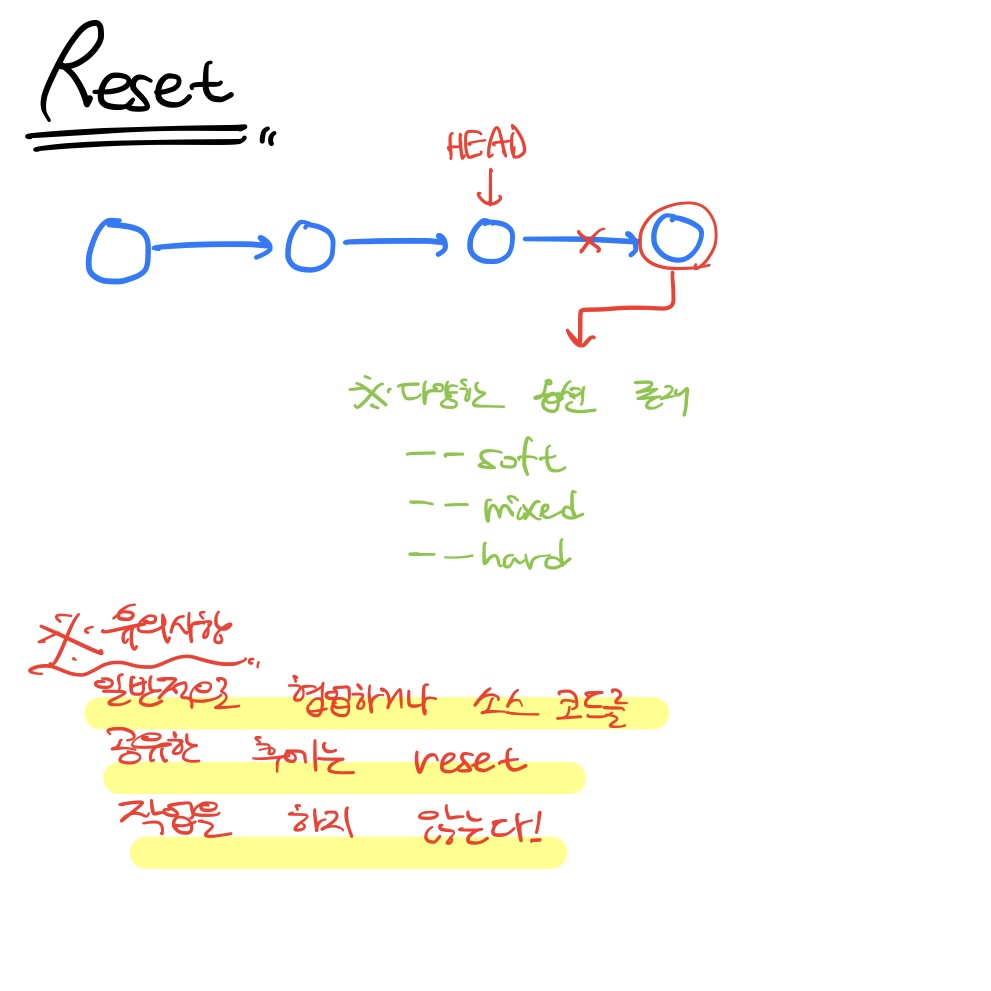 Reset
HEAD
※ 다양한 옵션 존재
-- soft
-- mixed
-- hard
※ 유의사항
일반적으로 협업하거나 소스 코드를
공유한 후에는 reset
작업을 하지 않는다!